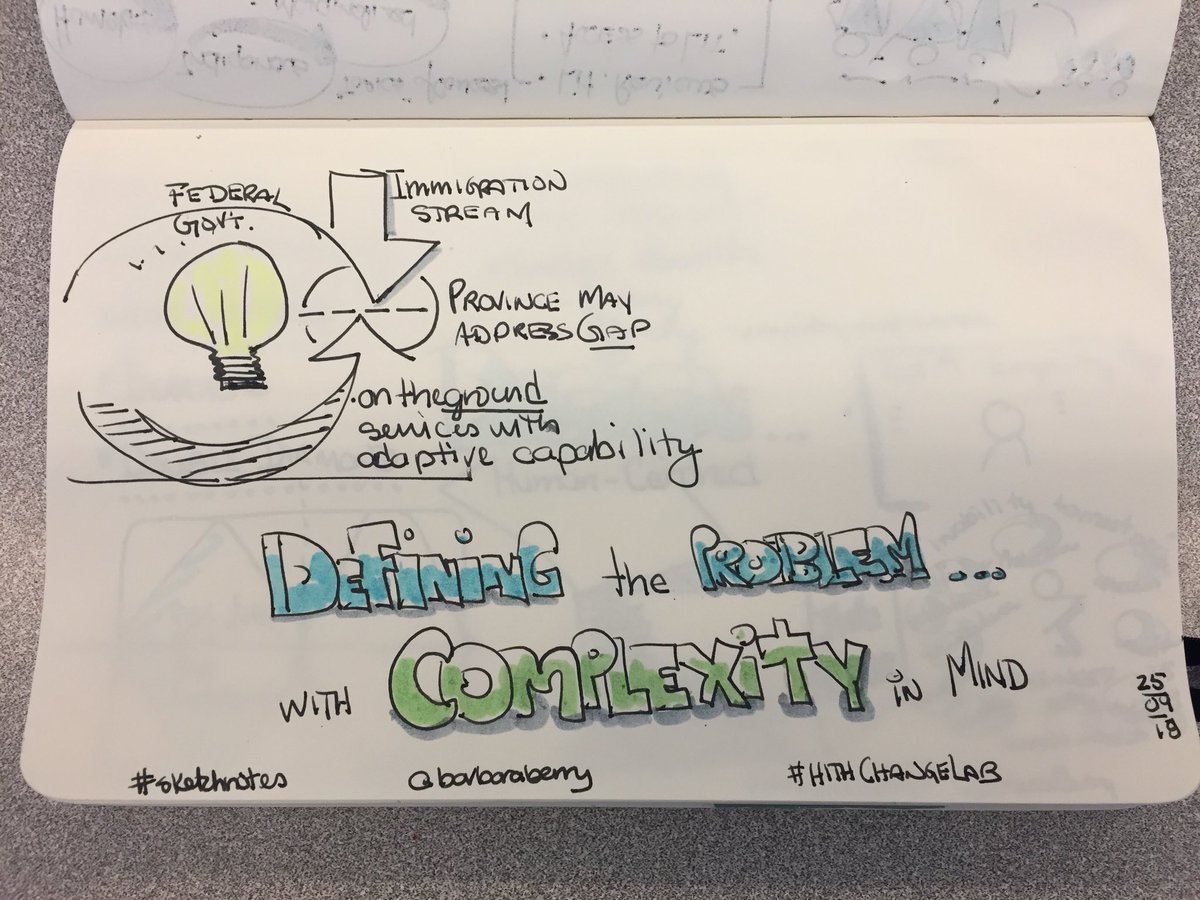 FEDERAL
GOVT.
IMMIGRATION
STREAM
PROVINCE MAY
ADDRESS GAP
• on the ground
services with
adaptive capability
DEFINING the PROBLEM...
WITH COMPLEXITY iN MIND
25
09
18
#sketchnotes
@barbaraberry
#HlthChangeLab